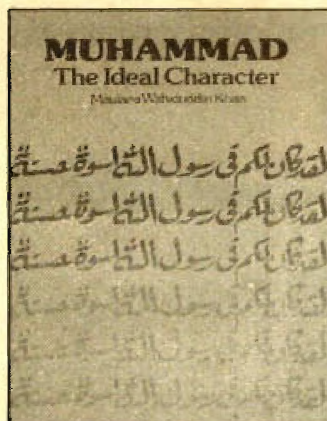 MUHAMMAD
The Ideal Character
Maulana Wahiduddin Khan
لقد كان لكم فى رسول الله اسوة حسنة
لقد كان لكم فى رسول الله اسوة حسنة
لقد كان لكم فى رسول الله اسوة حسنة
لقد كان لكم فى رسول الله اسوة حسنة
لقد كان لكم فى رسول الله اسوة حسنة
لقد كان لكم فى رسول الله اسوة حسنة